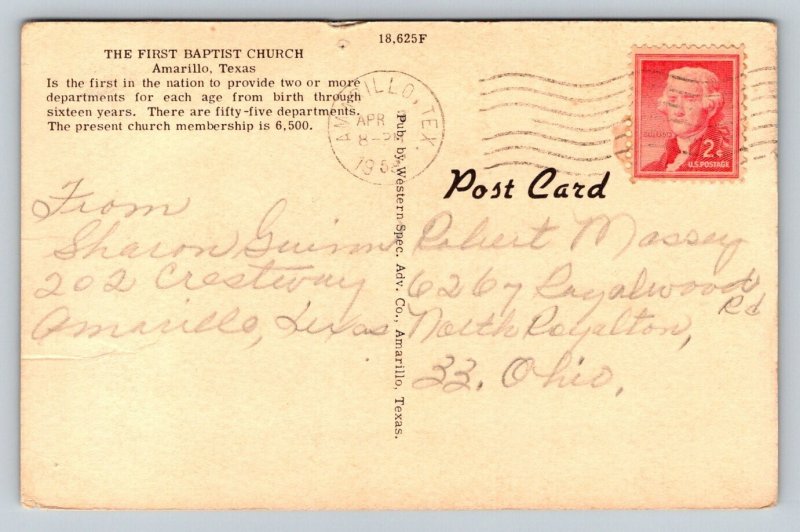 18,625F
THE FIRST BAPTIST CHURCH
Amarillo, Texas
Is the first in the nation to provide two or more
departments for each age from birth through
sixteen years. There are fifty-five departments.
The present church membership is 6,500.
AMARILLO, TEX.
APR
8-PM
U.S. POSTAGE
2¢
Post Card
Pub. by Western Spec. Adv. Co., Amarillo, Texas.
From
Sharon Guinn
202 Crestway
Amarillo, Texas
Robert Massey
6267 Royalwood Rd
North Royalton,
33. Ohio.